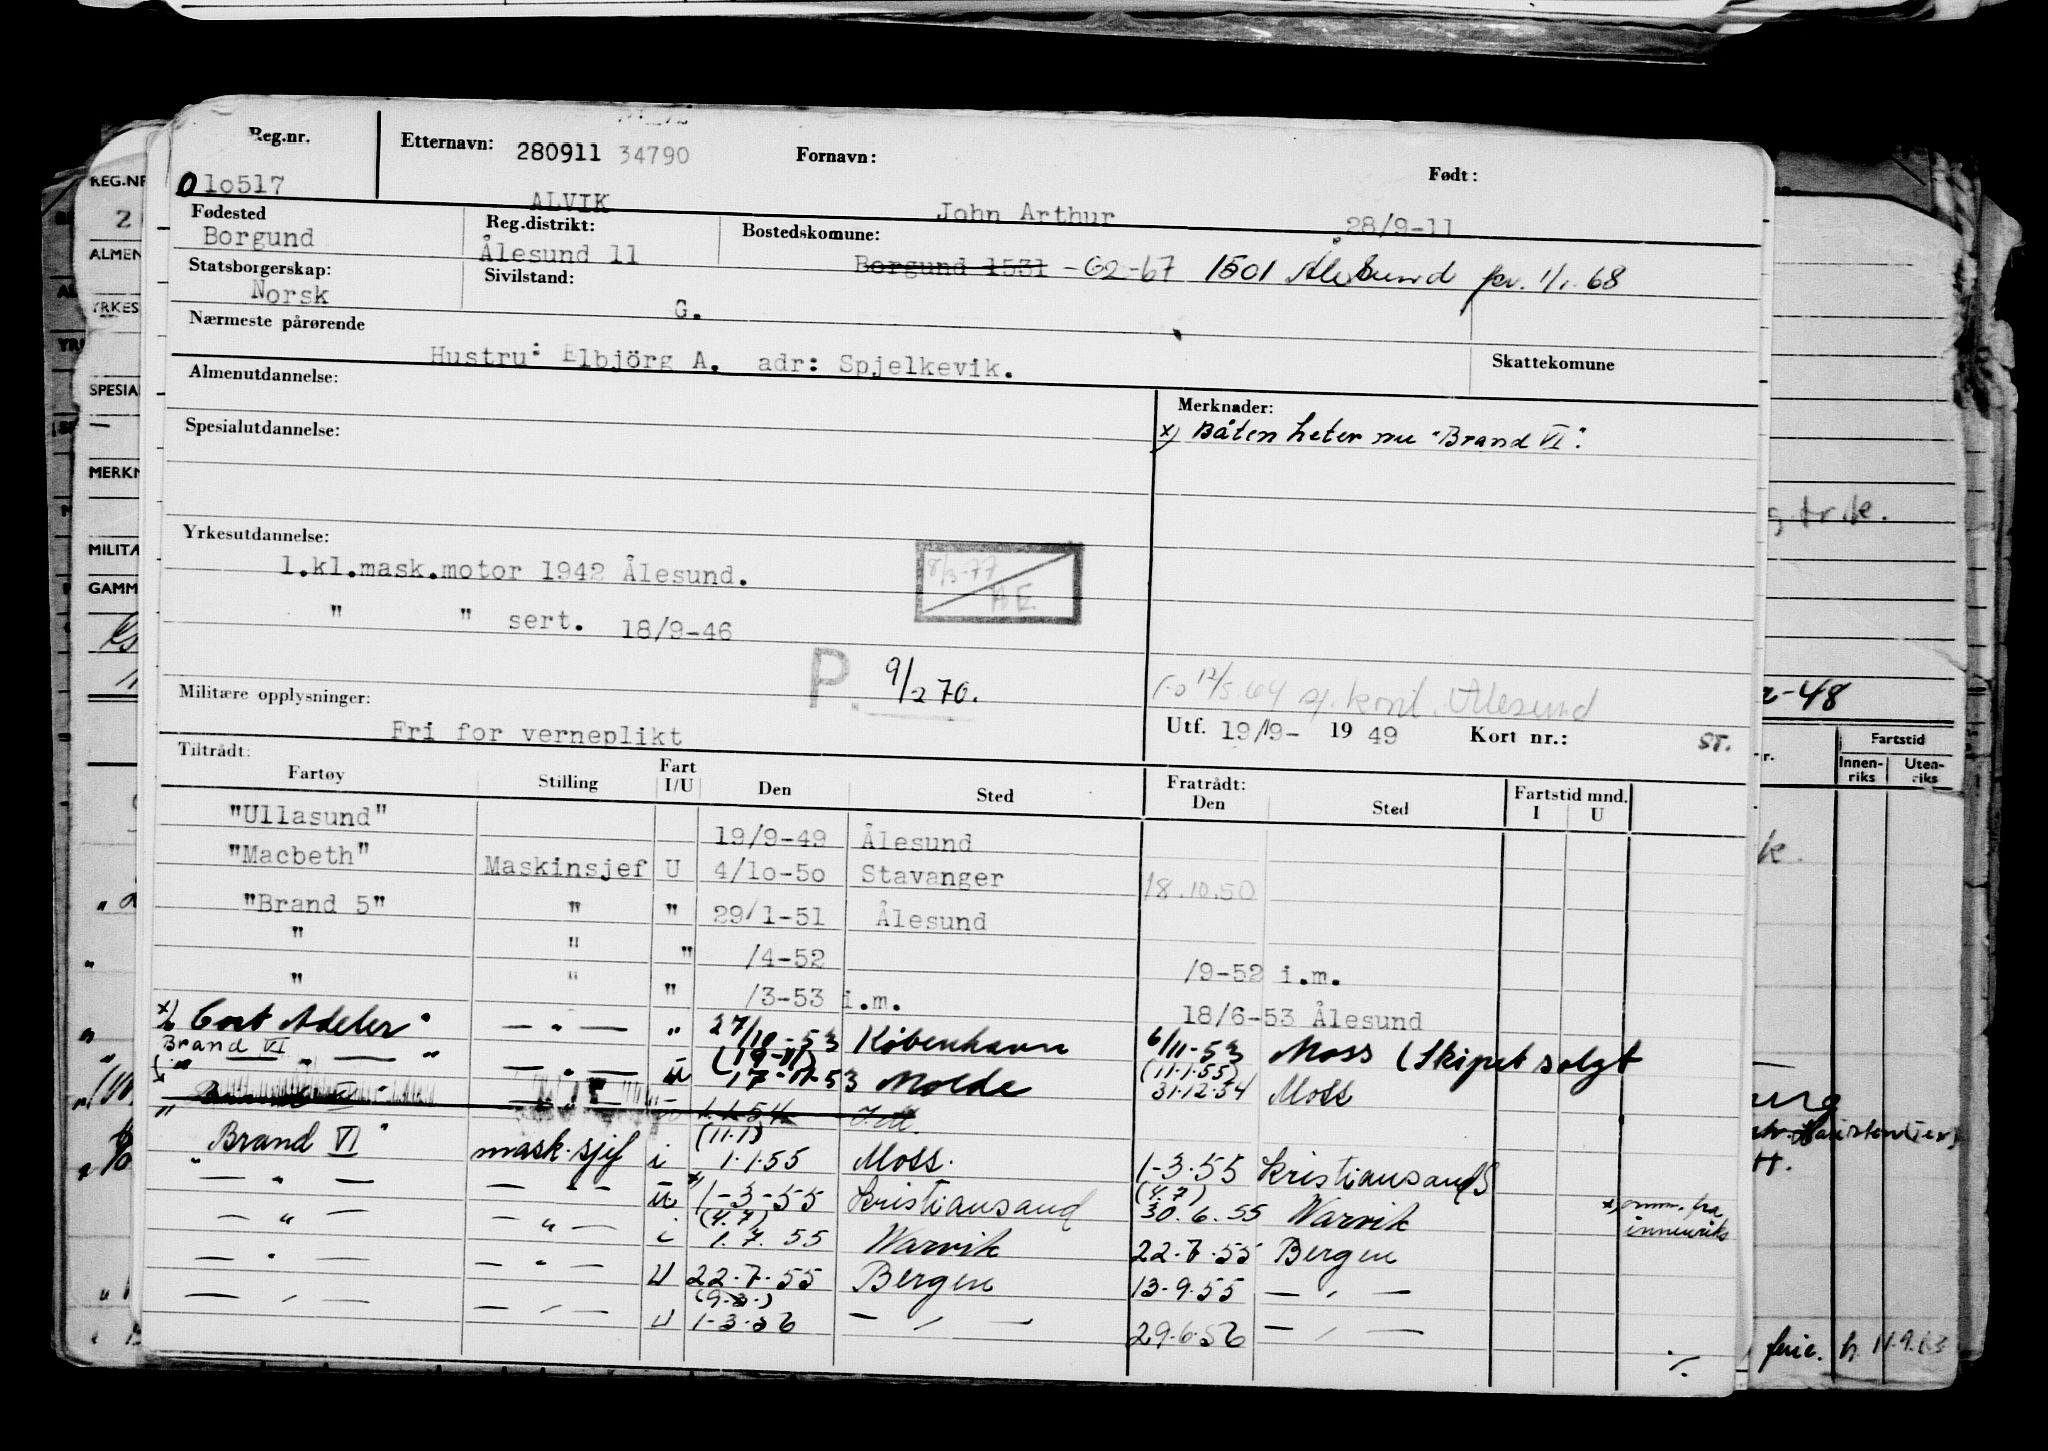 Reg.nr. Etternavn: 280911 34790 Fornavn: Født:
010517 ALVIK John Arthur 28/9-11
Fødested Reg.distrikt: Bostedskomune:
Borgund Ålesund 11 Borgund 1531 -62-67 1501 Ålesund fr. 1/1-68
Statsborgerskap: Sivilstand:
Norsk G.
Nærmeste pårørende
Hustru: Elbjörg A. adr: Spjelkevik. Skattekomune
Almenutdannelse: Merknader:
x) Båten heter nu "Brand VI".
Spesialutdannelse:
Yrkesutdannelse:
1.kl.mask.motor 1942 Ålesund. 8/3-77
" " sert. 18/9-46 AE.
P. 9/2 70.
Militære opplysninger: 12/5.64 sj. kont. Ålesund
Fri for verneplikt Utf. 19/9- 19 49 Kort nr.: ST.
Tiltrådt: Fratrådt:
Fartøy Stilling Fart I/U Den Sted Den Sted Fartstid mnd. I U
"Ullasund" 19/9-49 Ålesund
"Macbeth" Maskinsjef U 4/10-50 Stavanger 18.10.50
"Brand 5" " " 29/1-51 Ålesund
" " " /4-52 /9-52 i.m.
" " " /3-53 i.m. 18/6-53 Ålesund
x) "Cort Adeler" — " — " 27/10-53 København 6/11-53 Moss (Skipet solgt
Brand VI — " — — " — u (19-11) 17-11-53 Molde (11.1.55) 31.12.54 Moss
1.1.54
"Brand VI" mask.sjef i (11.1) 1.1.55 Moss. 1-3.55 Kristiansand S
— " — — " — u x) 1-3-55 Kristiansand (4.7) 30.6.55 Narvik x) omm. fra innenriks
— " — — " — i (4.7) 1.7.55 Narvik 22.7.55 Bergen
— " — — " — U 22.7.55 Bergen 13.9.55 — " —
— " — — " — U (9.3.) 1-3.56 — " — 29.6.56 — " —
./.
REG.NR
2
ALMEN
YRKES
SPESIAL
MERKN
MILITÆ
GAMM
-48
Fartstid
Innenriks Utenriks
ferie.